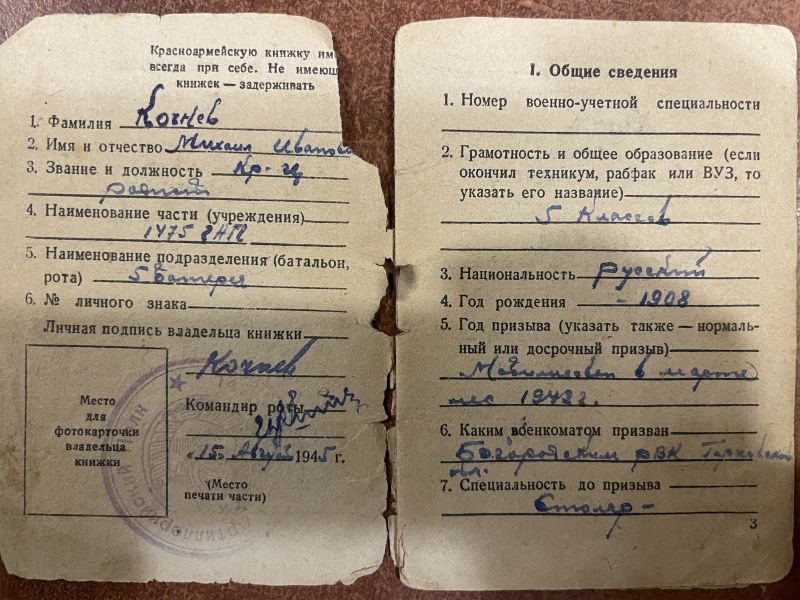 Красноармейскую книжку им
всегда при себе. Не имеющ
книжек — задерживать
1. Фамилия Кочнев
2. Имя и отчество Михаил Иванов
3. Звание и должность Кр-ец
радист
4. Наименование части (учреждения)
1475
5. Наименование подразделения (батальон,
рота) 5 батарея
6. № личного знака
Личная подпись владельца книжки
Кочнев
Место
для
фотокарточки
владельца
книжки
Командир роты
«15» Август 1945 г.
(Место
печати части)
I. Общие сведения
1. Номер военно-учетной специальности
2. Грамотность и общее образование (если
окончил техникум, рабфак или ВУЗ, то
указать его название)
5 классов
3. Национальность русский
4. Год рождения - 1908
5. Год призыва (указать также — нормаль-
ный или досрочный призыв)
Мобилизован в марте
мес 1942 г.
6. Каким военкоматом призван
Богородским РВК Горковской
обл.
7. Специальность до призыва
Столяр -
3